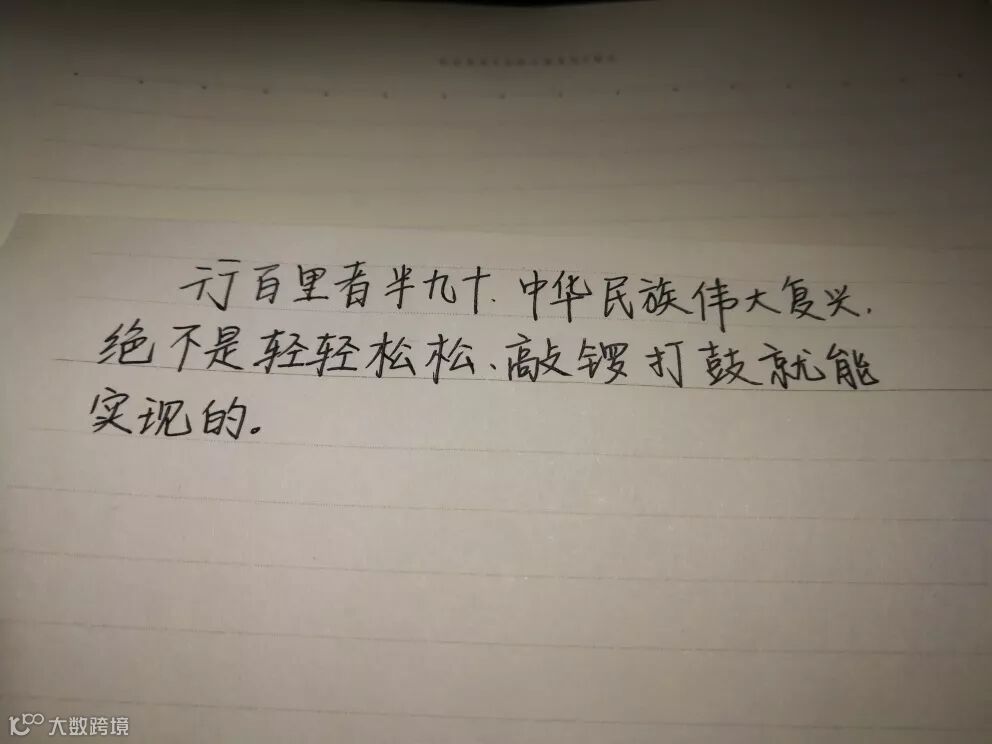 行百里者半九十、中华民族伟大复兴,
绝不是轻轻松松、敲锣打鼓就能
实现的。
大数跨境